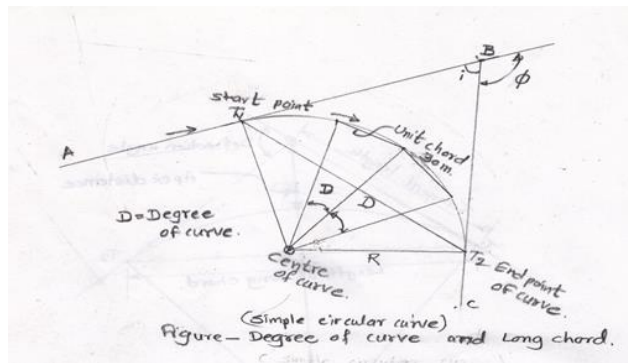 B
i
φ
start point
T1
Unit chord
30m.
A
D
D
D=Degree
of curve.
R
T2 End point
of curve.
Centre
of curve.
C
(simple circular curve)
Figure- Degree of curve and Long chord.